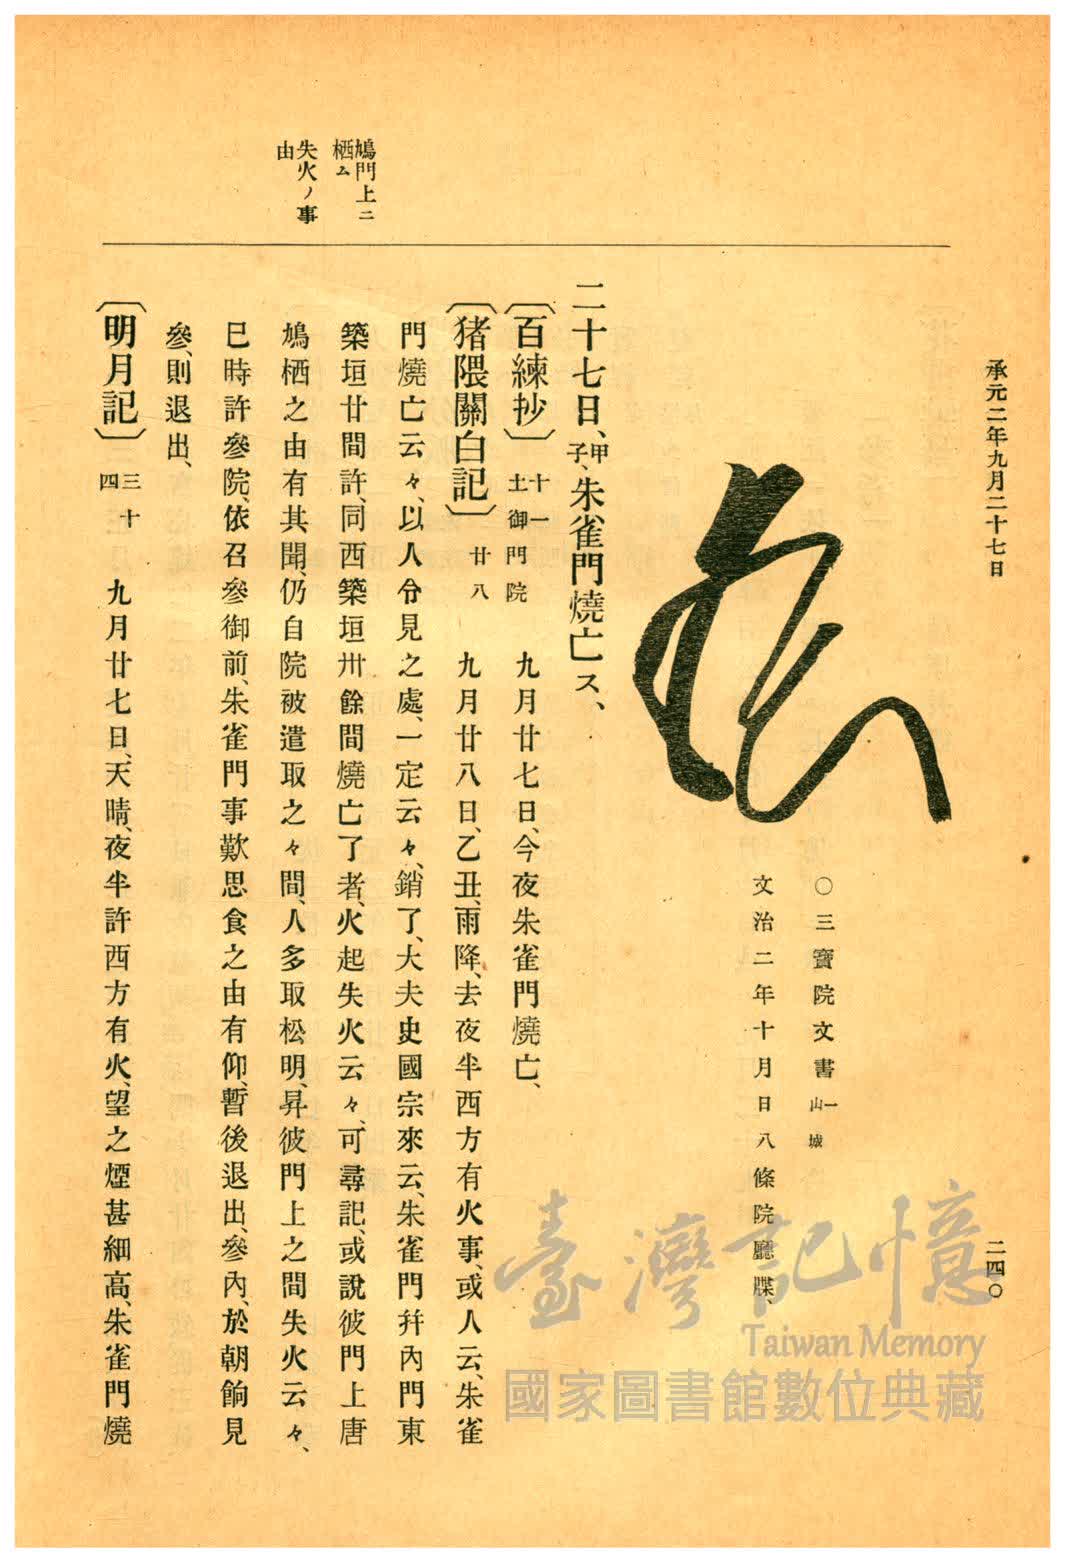 承元二年九月二十七日
二四〇
〇三寶院文書 一 山城
文治二年十月日八條院廳牒、
二十七日、甲子、朱雀門燒亡ス、
〔百練抄〕 十一 土御門院 九月廿七日、今夜朱雀門燒亡、
〔猪隈關白記〕 廿八 九月廿八日、乙丑、雨降、去夜半西方有火事、或人云、朱雀
門燒亡云々、以人令見之處、一定云々、銷了、大夫史國宗來云、朱雀門幷內門東
築垣廿間許、同西築垣卅餘間燒亡了者、火起失火云々、可尋記、或說彼門上唐
鳩栖之由有其聞、仍自院被遣取之々間、人多取松明、昇彼門上之間失火云々、
巳時許參院、依召參御前、朱雀門事歎思食之由有仰、暫後退出、參內、於朝餉見
參、則退出、
〔明月記〕 三十四 九月廿七日、天晴、夜半許西方有火、望之煙甚細高、朱雀門燒
鳩門上ニ
栖ム
失火ノ事
由
臺灣記憶
Taiwan Memory
國家圖書館數位典藏